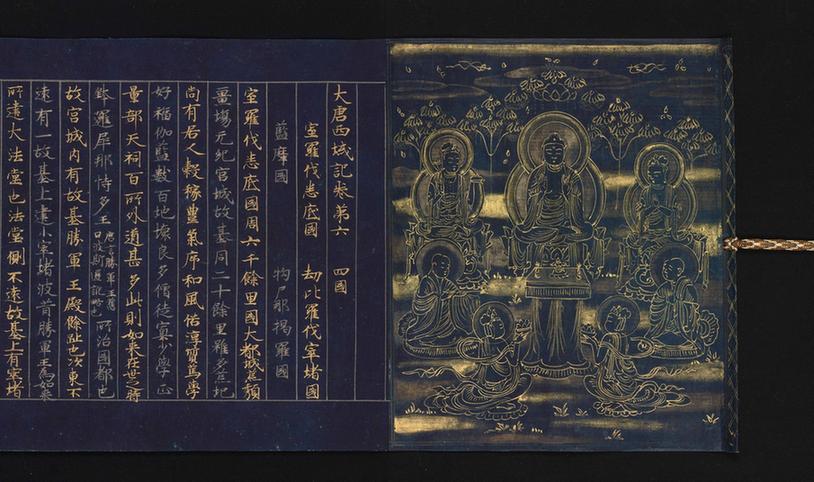 大唐西域記卷第六　四國
室羅伐悉底國　劫比羅伐窣堵國
藍摩國　拘尸那揭羅國
室羅伐悉底國周六千餘里國大都城荒頓
疆場无紀宮城故基周二十餘里雖多荒地
尚有居人穀稼豐氣序和風俗淳質篤學
好福伽藍數百地壞良多僧徒寡少學正
量部天祠百所外道甚多此則如來在世之時
鉢邏犀那恃多王 唐言勝軍王舊曰波斯匿訛略也 所治國都也
故宮城內有故基勝軍王殿餘趾也次東不
遠有一故基上建小窣堵波昔勝軍王爲如來
所建大法堂也法堂側不遠故基上有窣堵